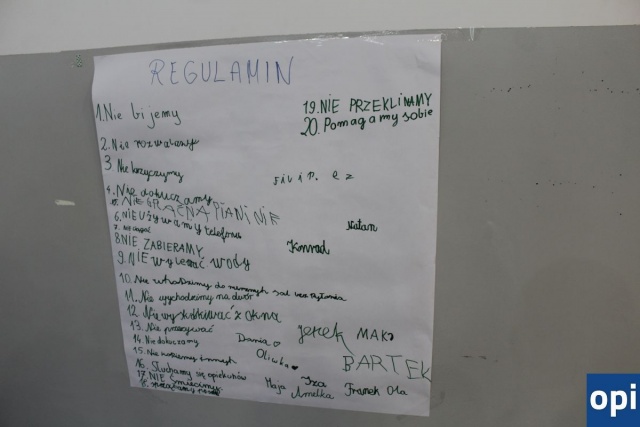 REGULAMIN
1. Nie bijemy
2. Nie rozwalamy
3. Nie krzyczymy
4. Nie dokuczamy
5. NIE GRAĆ NA PIANINIE
6. NIE UŻYWAMY telefonu
7. Nie
8. NIE ZABIERAMY
9. NIE wylewać wody
10. Nie wchodzimy do sal bez pytania
11. Nie wychodzimy na dwór
12. Nie wyskakiwać z okna
13. Nie przezywać
14. Nie dokuczamy
15. Nie innych
16. Słuchamy się opiekunów
17. NIE śmiecimy
18.
19. NIE PRZEKLINAMY
20. Pomagamy sobie
Natan
Konrad
jerek MAKS
Daria
Oliwka
BARTEK
Maja Iza
Amelka Franek Ola
opi